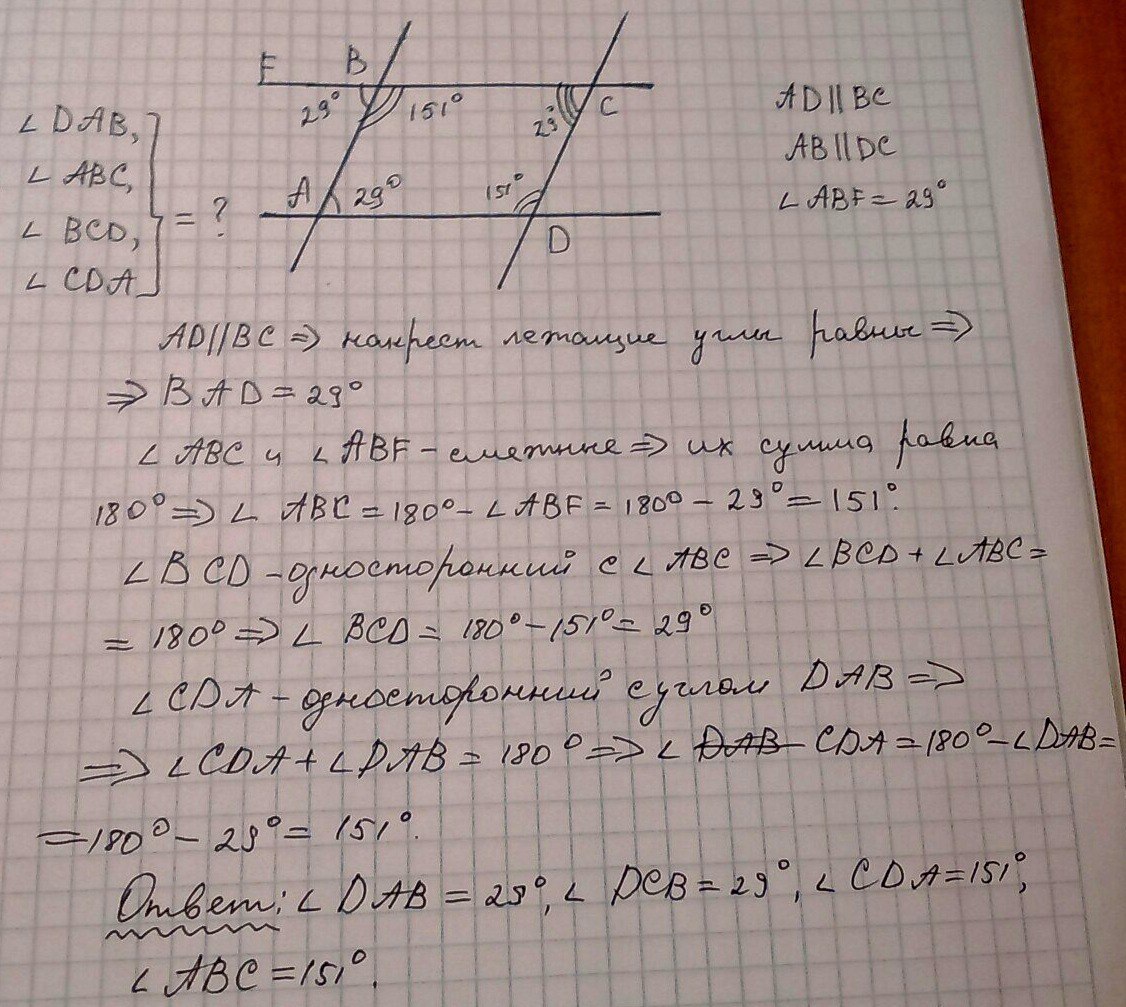 F B
29° 151° 29° C
A 29° 151° D
∠ DAB,
∠ ABC,
∠ BCD,
∠ CDA
= ?
AD||BC
AB||DC
∠ ABF = 29°
AD||BC ⇒ накрест лежащие углы равны ⇒
⇒ BAD = 29°
∠ ABC и ∠ ABF - смежные ⇒ их сумма равна
180° ⇒ ∠ ABC = 180° - ∠ ABF = 180° - 29° = 151°.
∠ BCD - односторонний с ∠ ABC ⇒ ∠ BCD + ∠ ABC =
= 180° ⇒ ∠ BCD = 180° - 151° = 29°
∠ CDA - односторонний с углом DAB ⇒
⇒ ∠ CDA + ∠ DAB = 180° ⇒ ∠ DAB CDA = 180° - ∠ DAB =
= 180° - 29° = 151°.
Ответ: ∠ DAB = 29°, ∠ DCB = 29°, ∠ CDA = 151°,
∠ ABC = 151°.